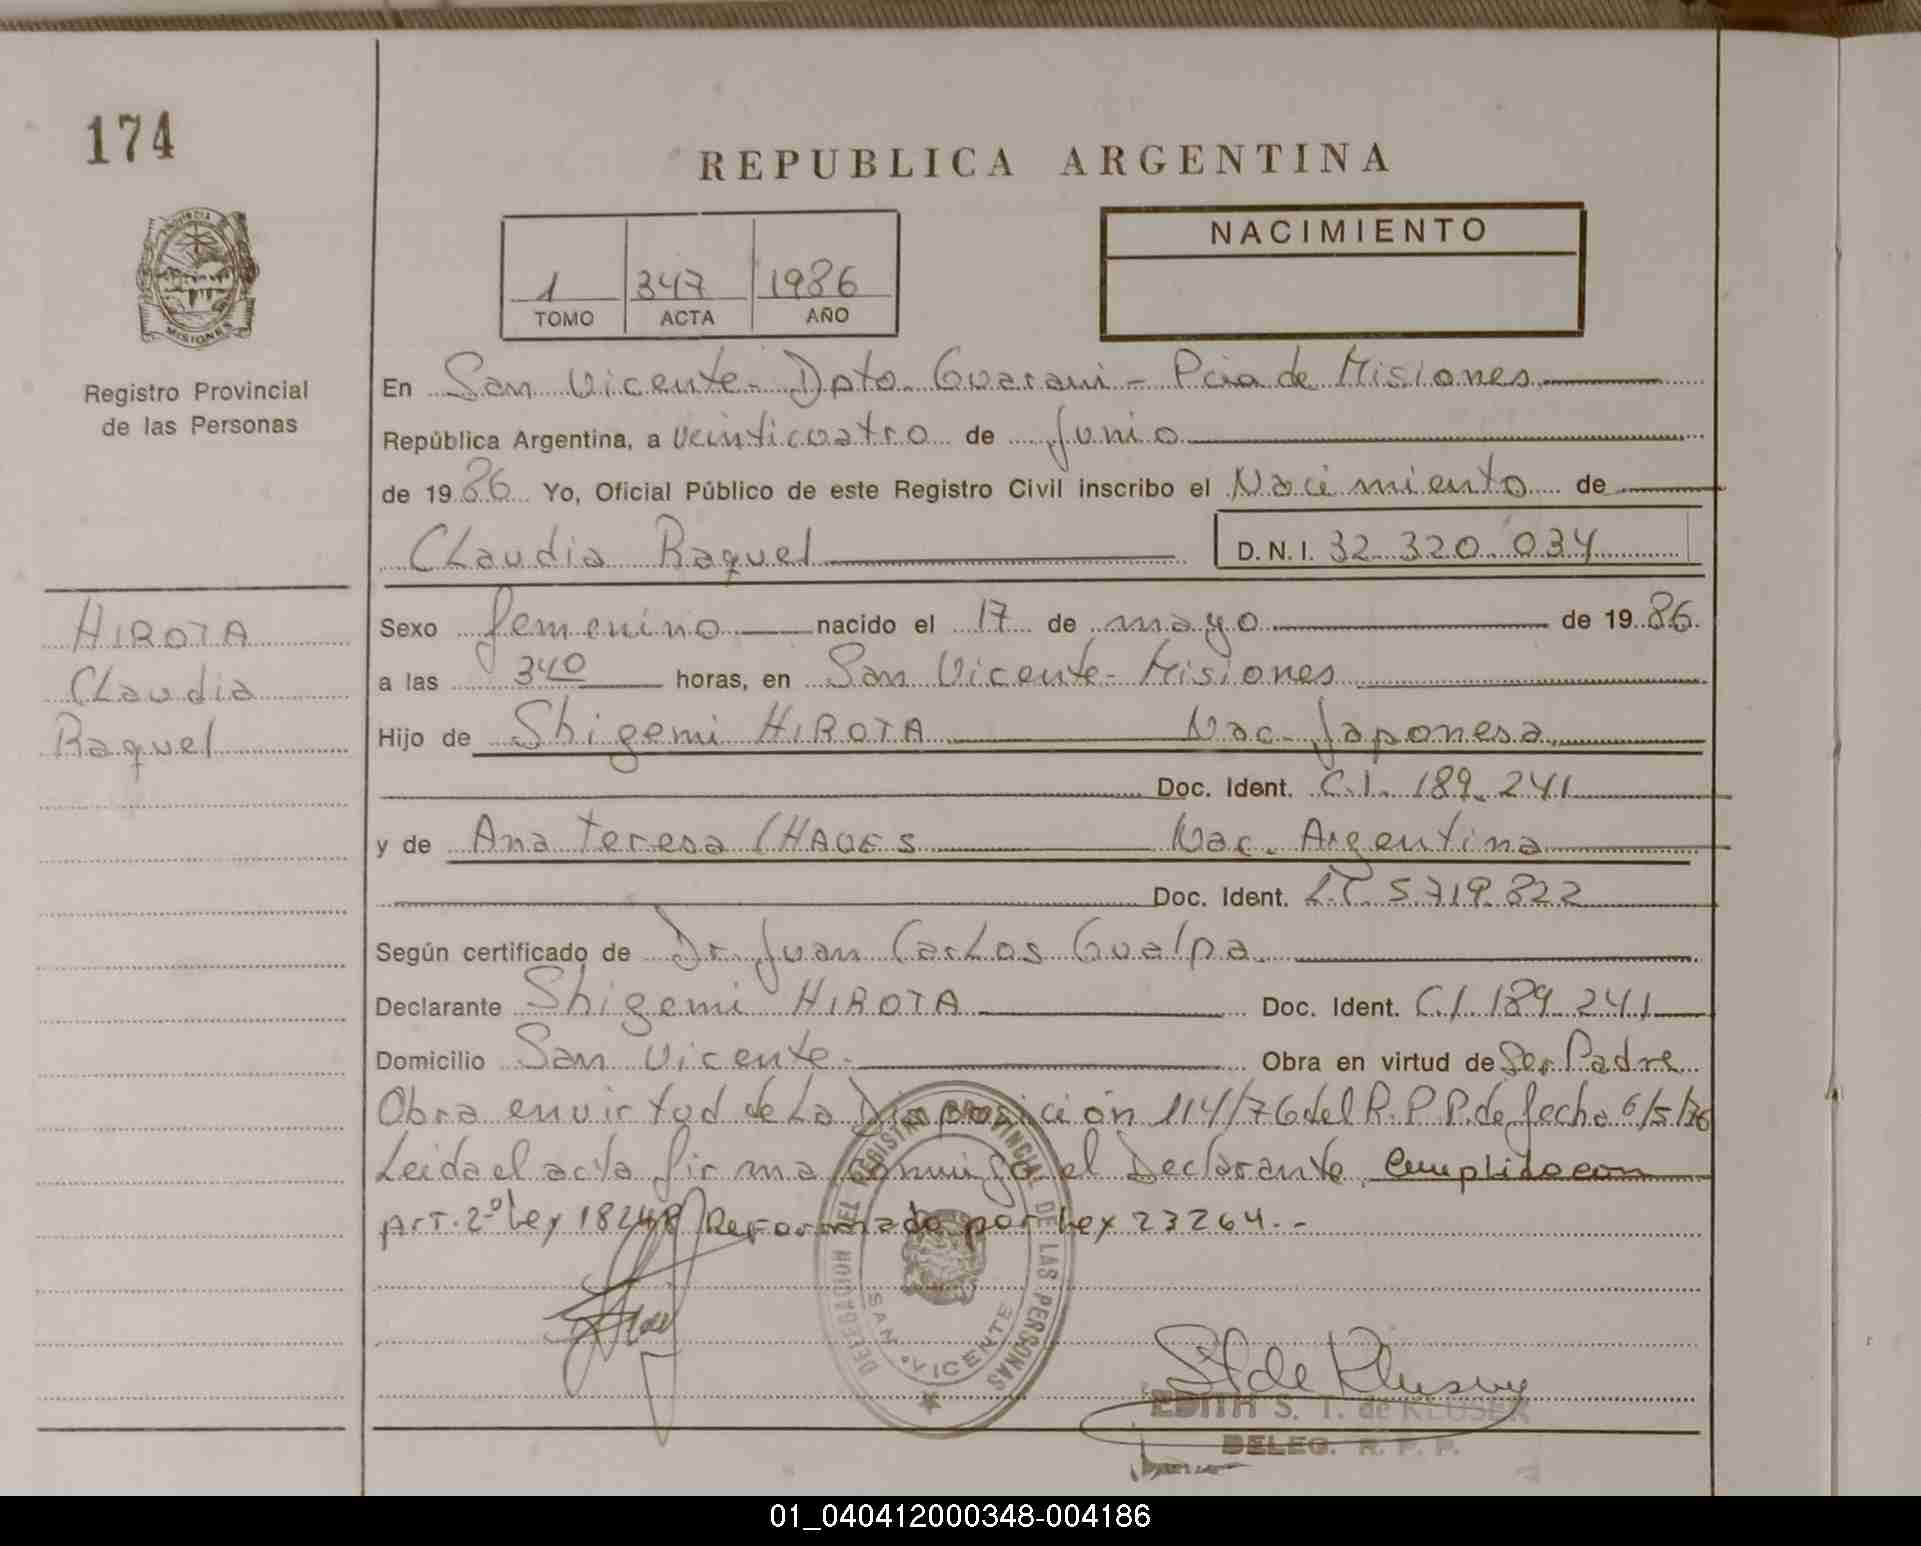 174
REPUBLICA ARGENTINA
PROVINCIA
MISIONES
Registro Provincial
de las Personas
1 347 1986
TOMO ACTA AÑO
NACIMIENTO
En San Vicente - Dpto Guarani - Pcia de Misiones
República Argentina, a veinticuatro de Junio
de 1986 Yo, Oficial Público de este Registro Civil inscribo el Nacimiento de
Claudia Raquel D.N.I. 32 320 034
HIROTA
Claudia
Raquel
Sexo femenino nacido el 17 de mayo de 1986.
a las 340 horas, en San Vicente - Misiones
Hijo de Shigemi HIROTA Nac. Japonesa
Doc. Ident. C.I. 189.241
y de Ana Teresa CHAVES Nac. Argentina
Doc. Ident. 5.719.822
Según certificado de Dr. Juan Carlos Gualpa
Declarante Shigemi HIROTA Doc. Ident. C.I. 189 241
Domicilio San Vicente. Obra en virtud de Ser Padre
Obra en virtud de La Disposición 114/76 del R.P.P. de fecha 6/5/76
Leida el acta firma conmigo el Declarante. Cumplido con
Art. 2º Ley 18248 Reformado por Ley 23264.-
DELEGACION DEL REGISTRO PROVINCIAL DE LAS PERSONAS
SAN VICENTE
EDITH S. T. de KLUSER
DELEG. R. P. P.
01_040412000348-004186